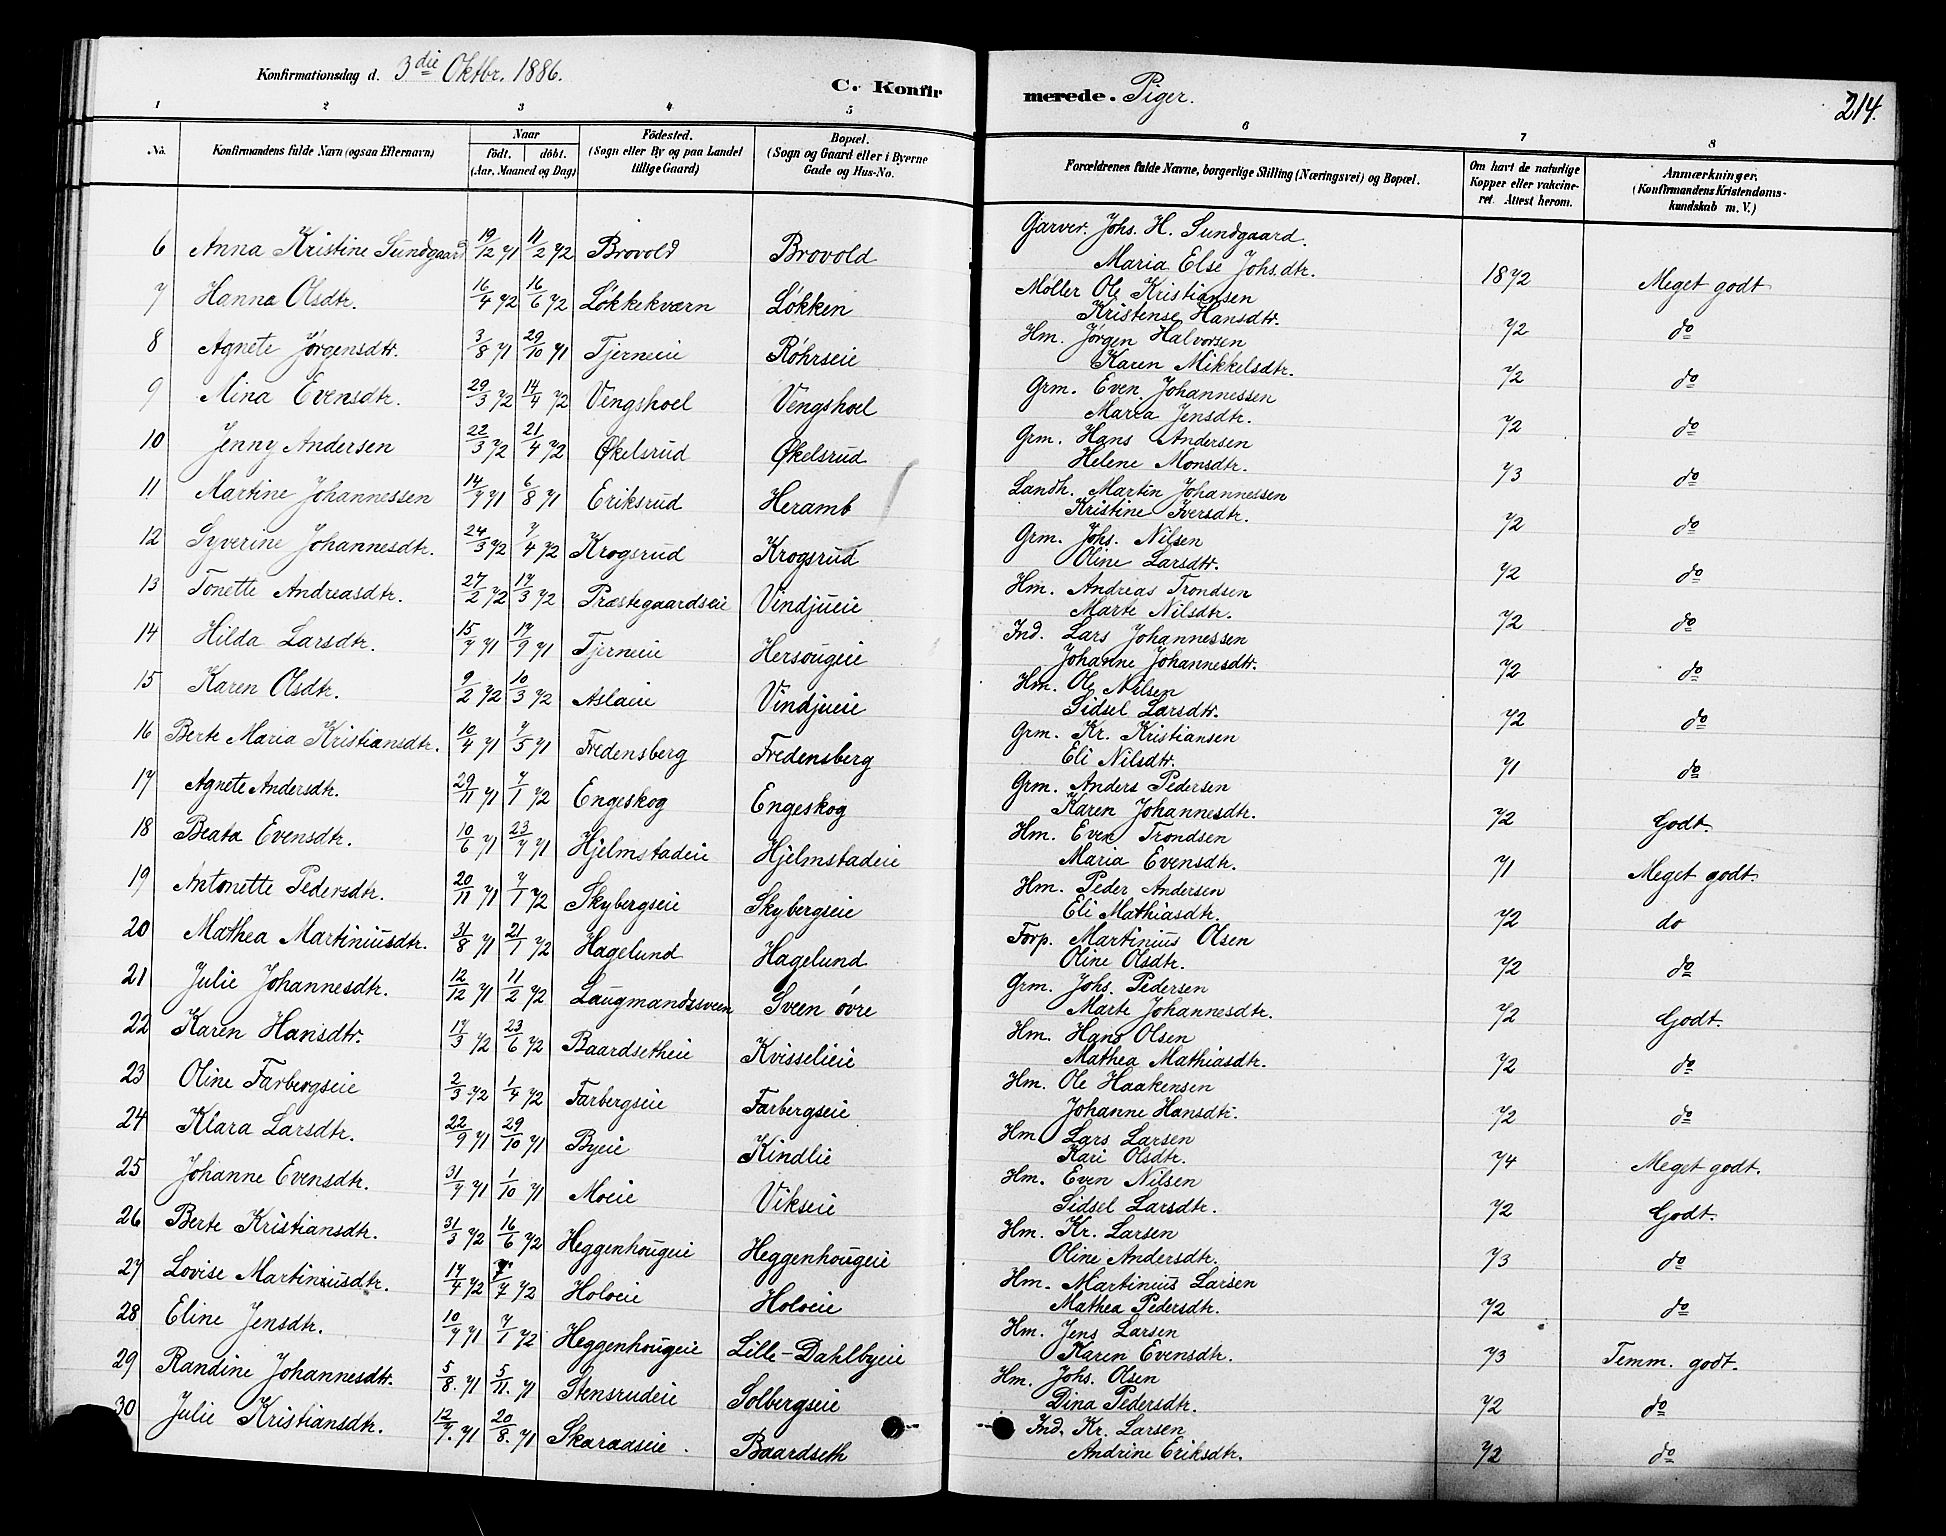 Konfirmationsdag d. 3die Oktbr. 1886.
C. Konfirmerede. Piger.
214.
1 2 3 4 5 6 7 8
No. Konfirmandens fulde Navn (ogsaa Efternavn) Naar født. døbt. (Aar, Maaned og Dag) Födested. (Sogn eller By og paa Landet tillige Gaard) Bopæl. (Sogn og Gaard eller i Byerne Gade og Hus-No. Forældrenes fulde Navne, borgerlige Stilling (Næringsvei) og Bopæl. Om havt de naturlige Kopper eller vakcineret. Attest herom. Anmærkninger. (Konfirmandens Kristendomskundskab m. V.)
6 Anna Kristine Sundgaard 19/12 71 11/2 72 Brovold Brovold Garver. Johs. H. Sundgaard.
Maria Else Johs.dtr. 1872 Meget godt
7 Hanna Olsdtr. 16/4 72 16/6 72 Løkkekværn Løkken Møller Ole Kristiansen
Kristense Hansdtr. 72 do
8 Agnete Jørgensdtr. 3/8 71 29/10 71 Tjerneie Røhrseie Hm. Jørgen Halvorsen
Karen Mikkelsdtr. 72 do
9 Mina Evensdtr. 29/3 72 14/4 72 Vengshoel Vengshoel Grm. Even Johannessen
Maria Jensdtr. 72 do
10 Jenny Andersen 22/3 72 21/4 72 Økelsrud Økelsrud Grm. Hans Andersen
Helene Monsdtr. 73 do
11 Martine Johannessen 14/7 71 6/8 71 Eriksrud Heramb Landh. Martin Johannessen
Kristine Iversdtr. 72 do
12 Syverine Johannesdtr. 24/3 72 7/4 72 Krogsrud Krogsrud Grm. Johs. Nilsen
Oline Larsdtr. 72 do
13 Tonette Andreasdtr. 27/2 72 17/3 72 Præstegaardseie Vindjueie Hm. Andreas Trondsen
Marte Nilsdtr. 72 do
14 Hilda Larsdtr. 15/7 71 17/9 71 Tjerneie Hersougeie Ind. Lars Johannessen
Johanne Johannesdtr. 72 do
15 Karen Olsdtr. 9/2 72 10/3 72 Aslaeie Vindjueie Hm. Ole Nilsen
Sidsel Larsdtr. 72 do
16 Berte Maria Kristiansdtr. 10/4 71 7/5 71 Fredensberg Fredensberg Grm. Kr. Kristiansen
Eli Nilsdtr. 71 do
17 Agnete Andersdtr. 29/11 71 7/1 72 Engeskog Engeskog Grm. Anders Pedersen
Karen Johannesdtr. 72 Godt.
18 Beata Evensdtr. 10/6 71 23/7 71 Hjelmstadeie Hjelmstadeie Hm. Even Trondsen
Maria Evensdtr. 71 Meget godt.
19 Antonette Pedersdtr. 20/11 71 7/1 72 Skybergseie Skybergseie Hm. Peder Andersen
Eli Mathiasdtr. 72 do
20 Mathea Martiniusdtr. 31/8 71 21/1 72 Hagelund Hagelund Forp. Martinius Olsen
Oline Olsdtr. 72 do
21 Julie Johannesdtr. 12/12 71 11/2 72 Laugmandssveen Sveen øvre Grm. Johs. Pedersen
Marte Johannesdtr. 72 Godt.
22 Karen Hansdtr. 17/3 72 23/6 72 Baardsetheie Kvisselieie Hm. Hans Olsen
Mathea Mathiasdtr. 72 do
23 Oline Farbergseie 2/3 72 1/4 72 Farbergseie Farbergseie Hm. Ole Haakensen
Johanne Hansdtr. 72 do
24 Klara Larsdtr. 22/9 71 29/10 71 Byeie Kindlie Hm Lars Larsen
Kari Olsdtr. 74 Meget godt.
25 Johanne Evensdtr. 31/7 71 1/10 71 Moeie Vikseie Hm. Even Nilsen
Sidsel Larsdtr. 72 Godt.
26 Berte Kristiansdtr. 31/3 72 16/6 72 Heggenhougeie Heggenhougeie Hm. Kr. Larsen
Oline Andersdtr. 73 do
27 Lovise Martiniusdtr. 17/4 72 7/7 72 Holoeie Holoeie Hm. Martinius Larsen
Mathea Pedersdtr. 72 do
28 Eline Jensdtr. 10/7 71 7/1 72 Heggenhougeie Lille-Dahlbyeie Hm. Jens Larsen
Karen Evensdtr. 73 Temm. godt.
29 Randine Johannesdtr. 5/8. 71 5/11. 71 Stensrudeie Solbergseie Hm. Johs. Olsen
Dina Pedersdtr. 72 do
30 Julie Kristiansdtr. 12/7. 71 20/8. 71 Skaraaseie. Baardseth Ind. Kr. Larsen
Andrine Eriksdtr. 72 do